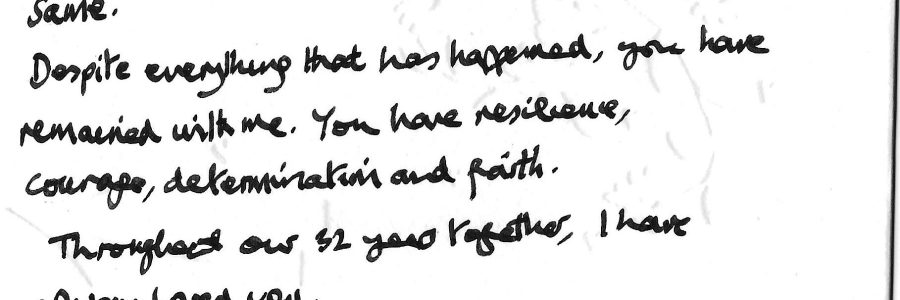 same.
Despite everything that has happened, you have
remained with me. You have resilience,
courage, determination and faith.
Throughout our 32 years together, I have
always loved you.